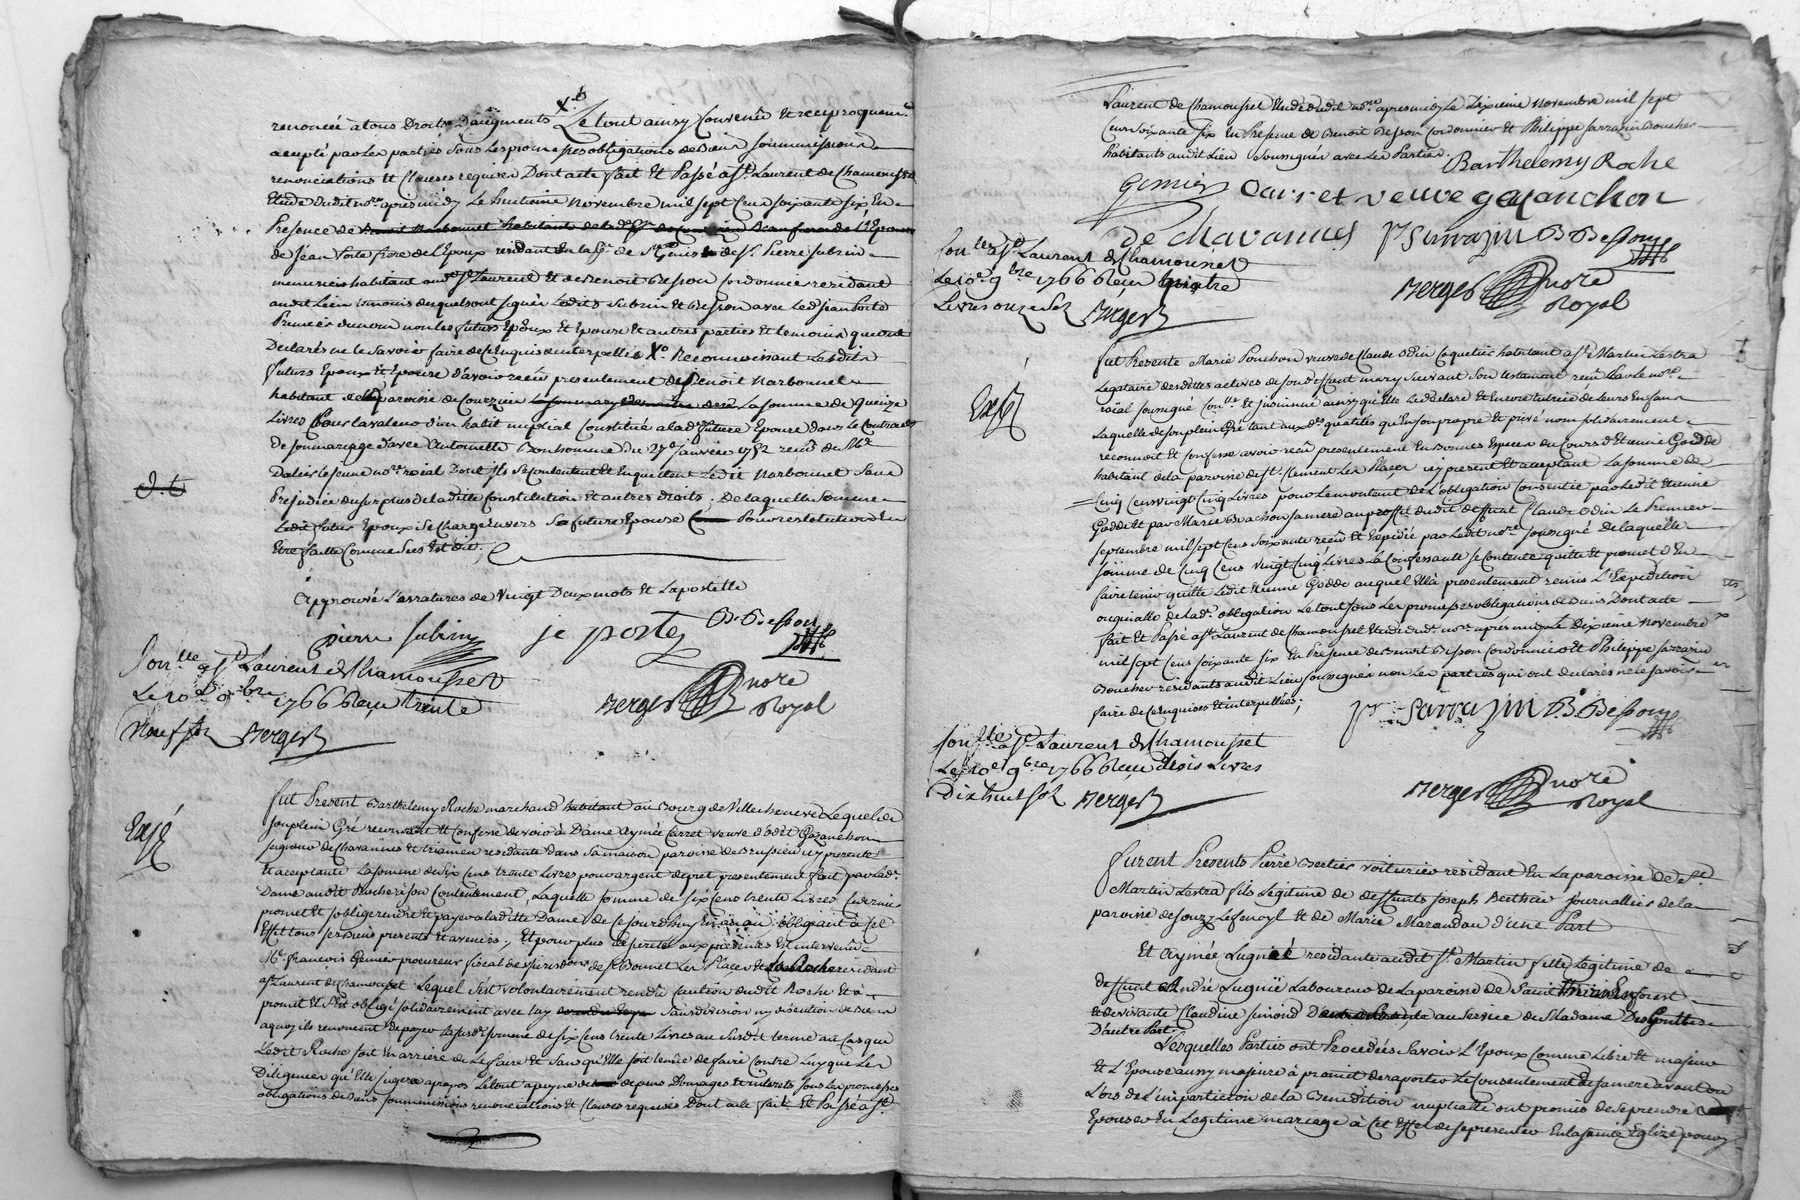 renoncée a tous Droits D'augments Xo Le tout ainsy Convenu et reciproquem.t
accepté par les parties sous les promesses obligations de Biens soummissions
renonciations et Clauses requises Dont acte fait Et Passé a St. Laurent de Chamousset
Etude dudit nore. apres midy Le huitieme Novembre mil sept cens soixante six En
Presence de Benoit Narbonnet habitant de la
de Jean Porte frere de l'Epoux residant en la de St. Genis de Sr. Pierre Subrin
menuisier habitant aud. St. Laurent et de Benoit Besson Cordonnier residant
audit Lieu temoins lesquels ont signés Lesdits Subrin et Besson avec led. Jean Porte
non les futurs Epoux et Epouse et autres parties et temoins qui ont
Declarés ne le Savoir faire de ce Enquis et interpellés Xo Reconnoissant Lesdits
futurs Epoux et Epouse d'avoir reçu presentement de Benoit Narbonnet
habitant de la paroisse de Courzieu la somme de quinze
Livres Pour la valeur d'un habit nuptial Constitué a lad. future Epouse dans le Contract
de son mariage d'avec Antoinette Bonhomme du 27e janvier 1752 reçu de Me.
Dalier le jeune nore. roial Dont ils se contentent et En quittent Ledit Narbonnet Sans
Prejudice du surplus de la ditte Constitution et autres droits; De laquelle somme
Ledit futur Epoux se charge Envers Sa future Epouse Pour restitution En
Etre faitte Comme Sus Est dit;
D. t.
Approuvé L'erratures de Vingt Deux mots et L'apostille
pierre subrin je porte B Besson
Con.lle a St. Laurent de Chamousset
Le 10e 9bre 1766 Reçu trente
Neuf sols Berger
Berger nore Royal
Exp.é
fut Present Barthelemy Roche marchand habitant au Bourg de Villechenève Lequel de
son plein Gré reconnoit et confesse devoir à Dame Aymée Carret veuve d'
seigneur de Chavannes et residante dans sa maison paroisse de Brussieu icy presente
et acceptante La somme de six cens trente Livres pour argent de pret presentement fait par Lad.
Dame audit Roche a son Contentement, Laquelle somme de six cens trente Livres
promet et s'oblige rendre et payer a la ditte Dame de Ce jourdhuy En un an obligeant à Cet
Effet tous ses biens presents et a venirs; Et pour plus de sureté aux presentes Est intervenu
Me. françois Gemier procureur fiscal des jurisdons. de St. Bonnet Les Places et la Roche residant
a St. Laurent de Chamousset Lequel s'est volontairement rendu Caution dudit Roche et à
promet et s'est obligé solidairement avec luy sans division ny discution de Biens
aquoy ils renoncent de payer La susd. somme de six cens trente Livres au susdit terme au cas que
Ledit Roche soit En arriere de Le faire et Sans qu'Elle soit tenue de faire Contre Luy que Les
Diligences qu'Elle jugera apropos Le tout apeyne de depens Domages et interets sous les promesses
obligations de biens soummissions renonciations et Clauses requises Dont acte fait Et Passé a St.
Laurent de Chamousset Etude dudit nore. apres midy Le Dixieme Novembre mil sept
Cens soixante six En Presence de Benoit Besson Cordonnier et Philippe Sarrazin Boucher
habitants audit Lieu soussignés avec les Parties
Barthelemy Roche
Gemier Carret veuve gayanchon
de chavannes Ph Sarrazin B Besson
Con.lle a St. Laurent de Chamousset
Le 10e 9bre 1766 Reçu quatre
Livres onze sols Berger
Berger nore Royal
Exp.é
fut Presente Marie Ponchon veuve de Claude Odin Coquetier habitant a St. Martin Lestra
Legataire des dettes actives de son deffunt mary suivant Son testament reçu Par le nore.
roial soussigné Con.lle Et insinué ainsy qu'Elle Le declare Et Encore tutrice de leurs Enfans
Laquelle de son plein Gré tant aux d. qualités qu'En son propre et privé nom solidairement
reconnoit et Confesse avoir reçu presentement En Bonnes Especes du Cours d'Etienne Godde
habitant de la paroisse de St. Clement Les Places icy present Et acceptant La somme de
Cinq cens vingt Cinq Livres pour Le montant de L'obligation Consentie par Ledit Etienne
Godde et par Marie Brachon sa mere au proffit dudit deffunt Claude Odin Le Premier
septembre mil sept cens soixante reçu Et Expedié par Ledit nore. soussigné de laquelle
somme de Cinq Cens Vingt Cinq Livres La Confessante se Contente quitte Et promet d'En
faire tenir quitte Ledit Etienne Godde auquel Ella presentement remis L'Expedition
originalle de lad. obligation Le tout sous Les promesses obligations de Biens Dont acte
fait Et Passé a St. Laurent de Chamousset Etude dud. nore. apres midy Le Dixieme Novembre
mil sept cens soixante six En Presence de Benoit Besson Cordonnier et Philippe Sarrazin
Boucher residants audit Lieu soussignés non Les parties qui ont declarés ne le Savoir
faire de Ce Enquises et interpellées;
Ph Sarrazin B. Besson
Con.lle a St. Laurent de Chamousset
Le 10e 9bre 1766 Reçu trois Livres
Dix huit sols Berger
Berger nore Royal
furent Presents Pierre Bertier voiturier residant En La paroisse de St.
Martin Lestra fils Legitime de deffunts Joseph Berthier journallier de la
paroisse de Souzy Et de Marie Marandon d'Une Part
Et Aymée Lugnié residante audit St. Martin fille Legitime de
deffunt André Lugnié Laboureur de La paroisse de Saint forest
et de vivante Claudine Simond au service de Madame Desgouttes
D'autre Part;
Lesquelles Parties ont Procedées Savoir L'Epoux Comme Libre Et majeur
et L'Epouse aussy majeure à promit de raporter Le Consentement de sa mere avant ou
Lors de L'impartition de la Benediction nuptialle ont promis de se prendre
Epouser En Legitime mariage à Cet Effet de se presenter En la sainte Eglize pour y